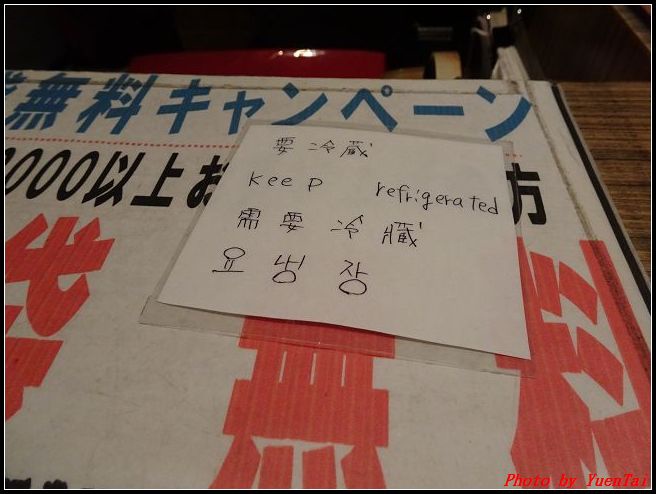 無料キャンペーン
000以上お
方
要冷蔵
keep refrigerated
需要冷藏
요냉장
無
Photo by YuenTai